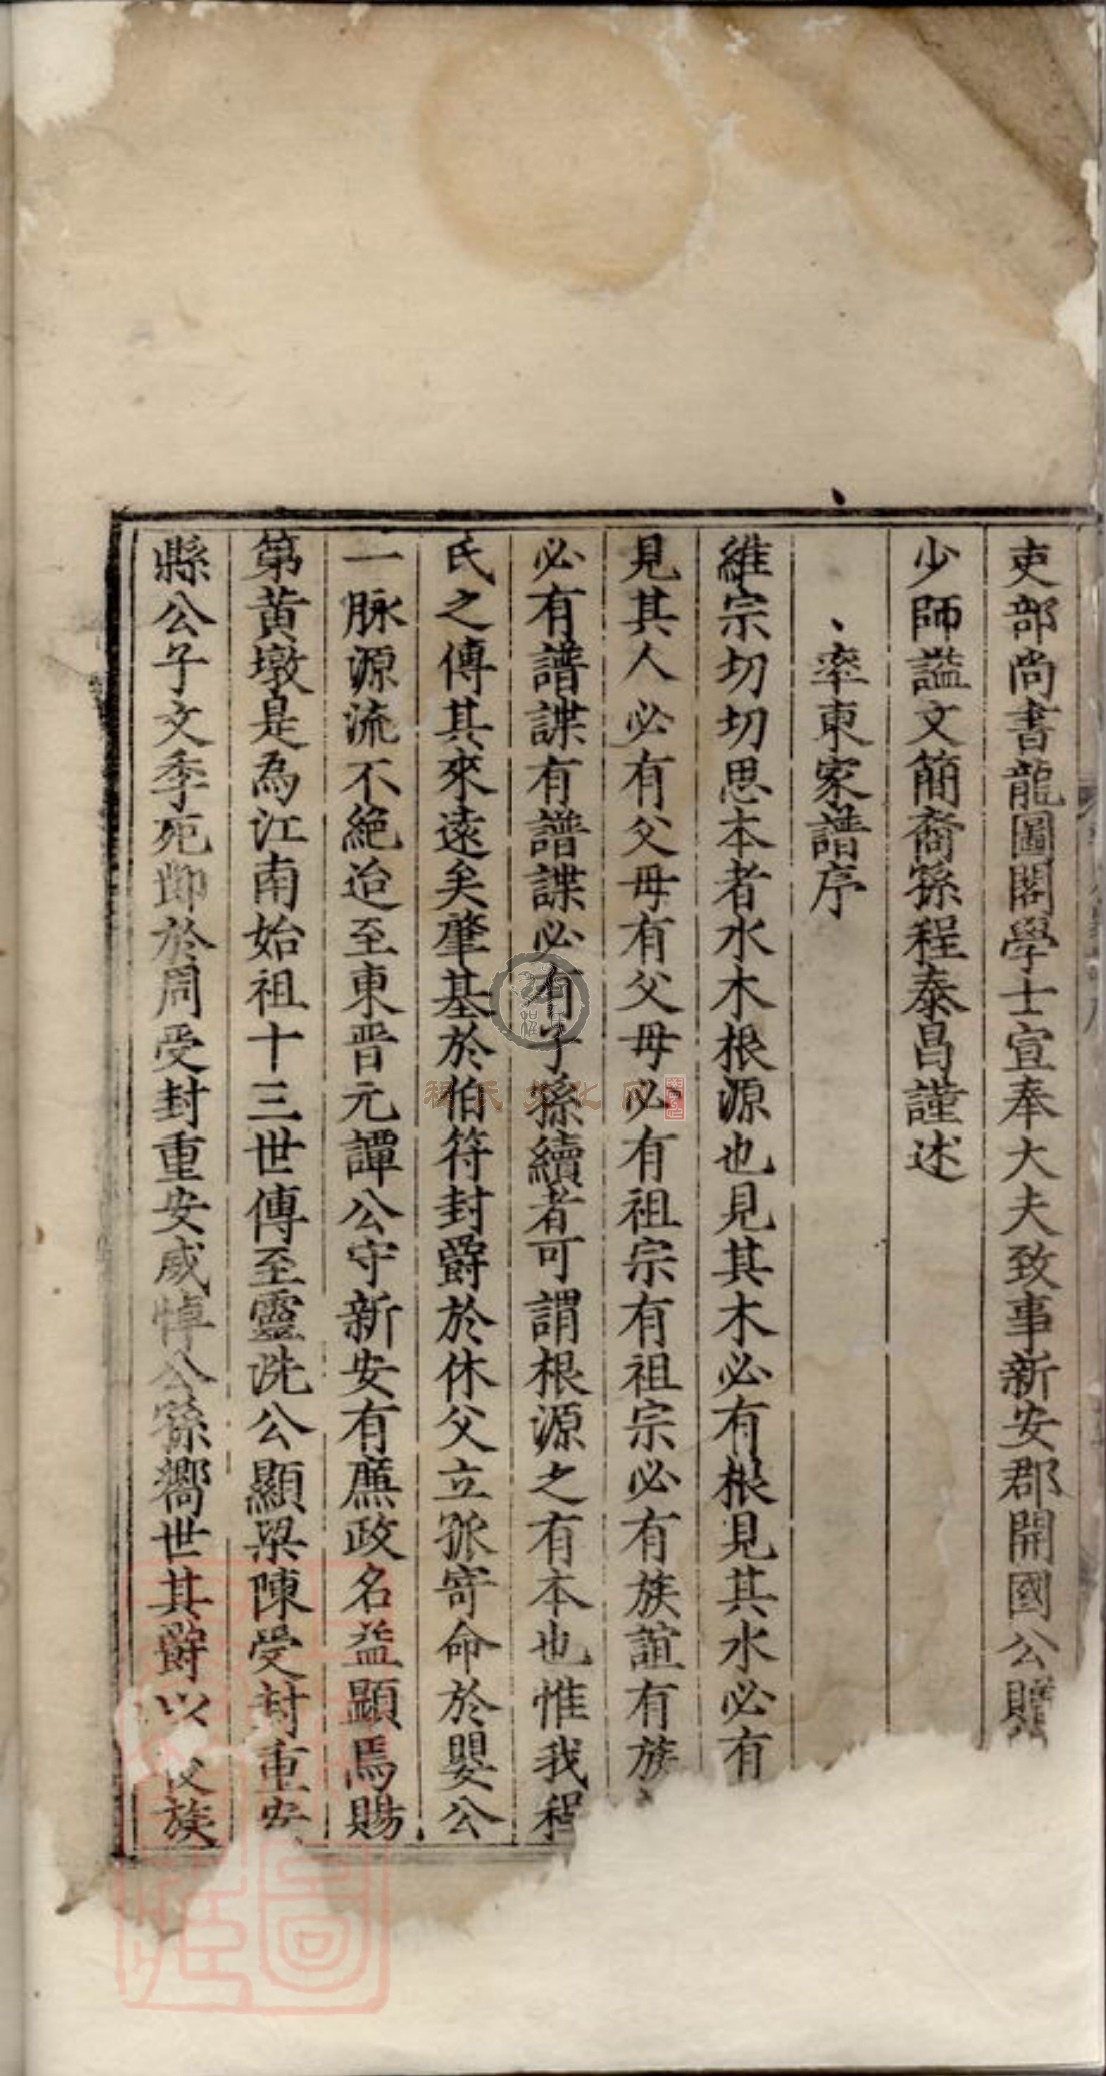 吏部尚書龍圖閣學士宣奉大夫致事新安郡開國公贈
少師謚文簡裔孫程泰昌謹述
率東家譜序
維宗切切思本者水木根源也見其木必有根見其水必有
見其人必有父母有父母必有祖宗有祖宗必有族誼有族
必有譜諜有譜諜必有子孫續者可謂根源之有本也惟我程
氏之傳其來遠矣肇基於伯符封爵於休父立孤寄命於嬰公
一脉源流不絕迨至東晉元譚公守新安有廉政名益顯焉賜
第黃墩是為江南始祖十三世傳至靈洗公顯梁陳受封重安
縣公子文季死節於周受封重安威悼公孫嚮世其爵以 族
程氏文化网